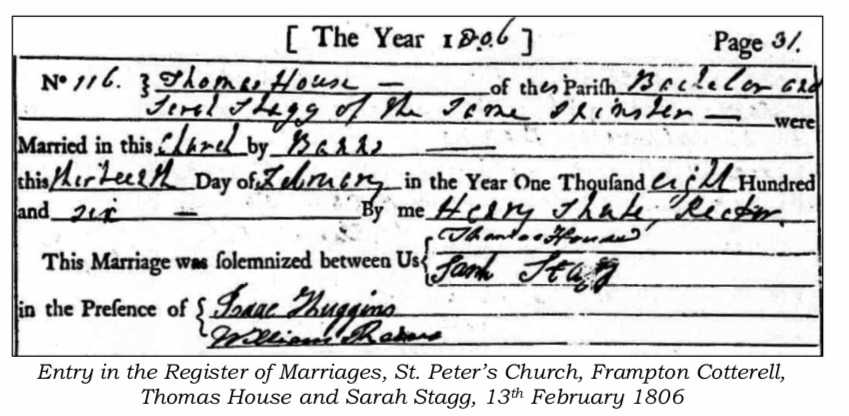 [ The Year 1806 ] Page 31.
No 116. } Thomas House — of this Pariſh Bachelor and
Sarah Stagg of the Same Spinster — were
Married in this Church by Banns —
this thirteenth Day of February in the Year One Thouſand eight Hundred
and six — By me Henry Rector.
Thomas House
This Marriage was ſolemnized between Us {
Sarah Stagg
in the Preſence of { Isaac Huggins
William
Entry in the Register of Marriages, St. Peter’s Church, Frampton Cotterell,
Thomas House and Sarah Stagg, 13th February 1806